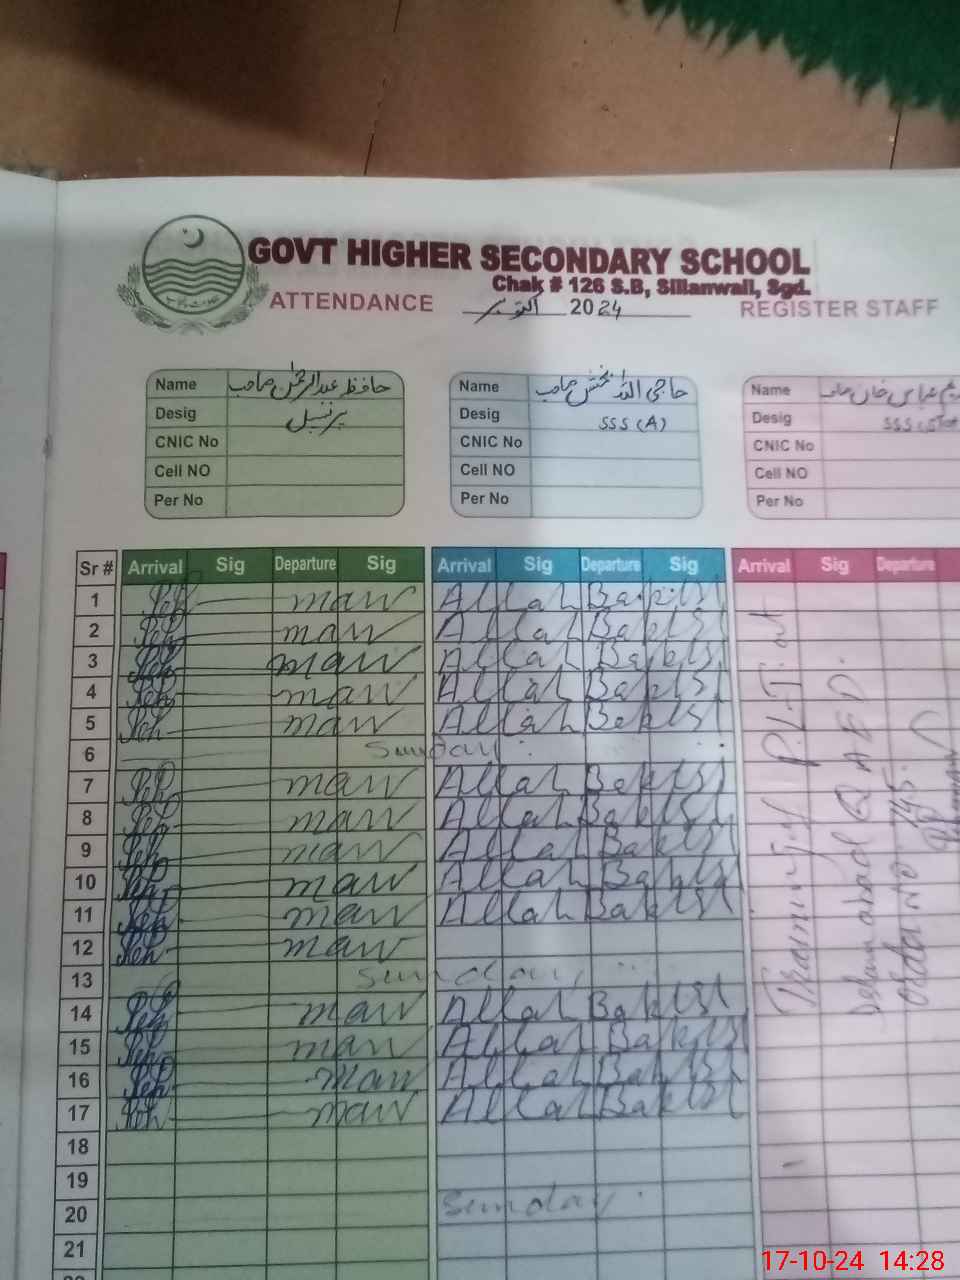 GOVT HIGHER SECONDARY SCHOOL
Chak # 126 S.B, Sillanwali, Sgd.
ATTENDANCE اکتوبر 2024 REGISTER STAFF
Name حافظ عبدالرحمٰن صاحب
Desig پرنسپل
CNIC No
Cell NO
Per No
Name حاجی اللہ بخش صاحب
Desig SSS (A)
CNIC No
Cell NO
Per No
Name عباس خان صاحب
Desig SSS
CNIC No
Cell NO
Per No
Sr # Arrival Sig Departure Sig Arrival Sig Departure Sig Arrival Sig Departure
1 Reh man Allah Bakhsh
2 Reh man Allah Bakhsh
3 Reh man Allah Bakhsh
4 Reh man Allah Bakhsh
5 Reh man Allah Bakhsh
6 Sunday
7 Reh man Allah Bakhsh
8 Reh man Allah Bakhsh
9 Reh man Allah Bakhsh
10 Reh man Allah Bakhsh
11 Reh man Allah Bakhsh
12 Reh man
13 Sunday
14 Reh man Allah Bakhsh
15 Reh man Allah Bakhsh
16 Reh man Allah Bakhsh
17 Reh man Allah Bakhsh
18
19
20 Sunday
21
Training at
QAED
745
17-10-24 14:28